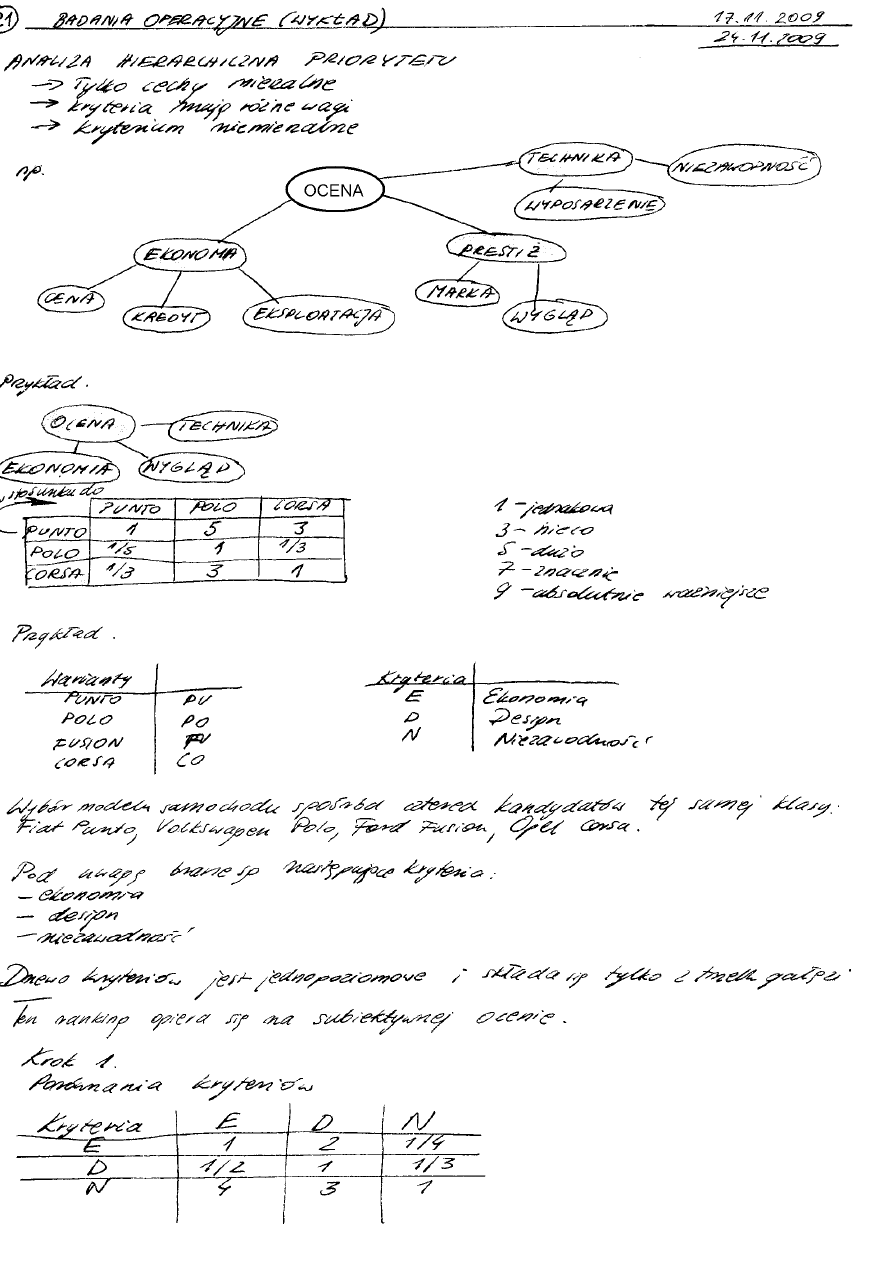 21 BADANIA OPERACYJNE (WYKŁAD) 17.11.2009
24.11.2009
ANALIZA HIERARCHICZNA PRIORYTETU
→ Tylko cechy mierzalne
→ kryteria mają różne wagi
→ kryterium niemierzalne
np.
OCENA
TECHNIKA
NIEZAWODNOŚĆ
WYPOSARZENIE
EKONOMIA
PRESTIŻ
CENA
KREDYT
EKSPLOATACJA
MARKA
WYGLĄD
Przykład.
OCENA
TECHNIKA
EKONOMIA
WYGLĄD
w stosunku do
PUNTO POLO CORSA
PUNTO 1 5 3
POLO 1/5 1 1/3
CORSA 1/3 3 1
1 - jednakowa
3 - nieco
5 - dużo
7 - znacznie
9 - absolutnie ważniejsze
Przykład.
Warianty
PUNTO PU
POLO PO
FUSION FU
CORSA CO
Kryteria
E Ekonomia
D Design
N Niezawodność
Wybór modelu samochodu spośród czterech kandydatów tej samej klasy:
Fiat Punto, Volkswagen Polo, Ford Fusion, Opel Corsa.
Pod uwagę brane są następujące kryteria:
- ekonomia
- design
- niezawodność
Drzewo kryteriów jest jednopoziomowe i składa się tylko z trzech gałęzi
Ten ranking opiera się na subiektywnej ocenie.
Krok 1.
Porównania kryteriów
Kryteria E D N
E 1 2 1/4
D 1/2 1 1/3
N 4 3 1